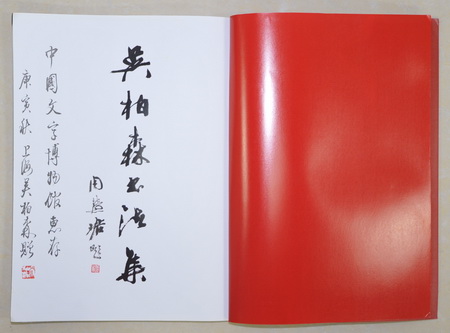 吴柏森书法集
周慧珺题
中国文字博物馆惠存
庚寅秋 上海吴柏森赠